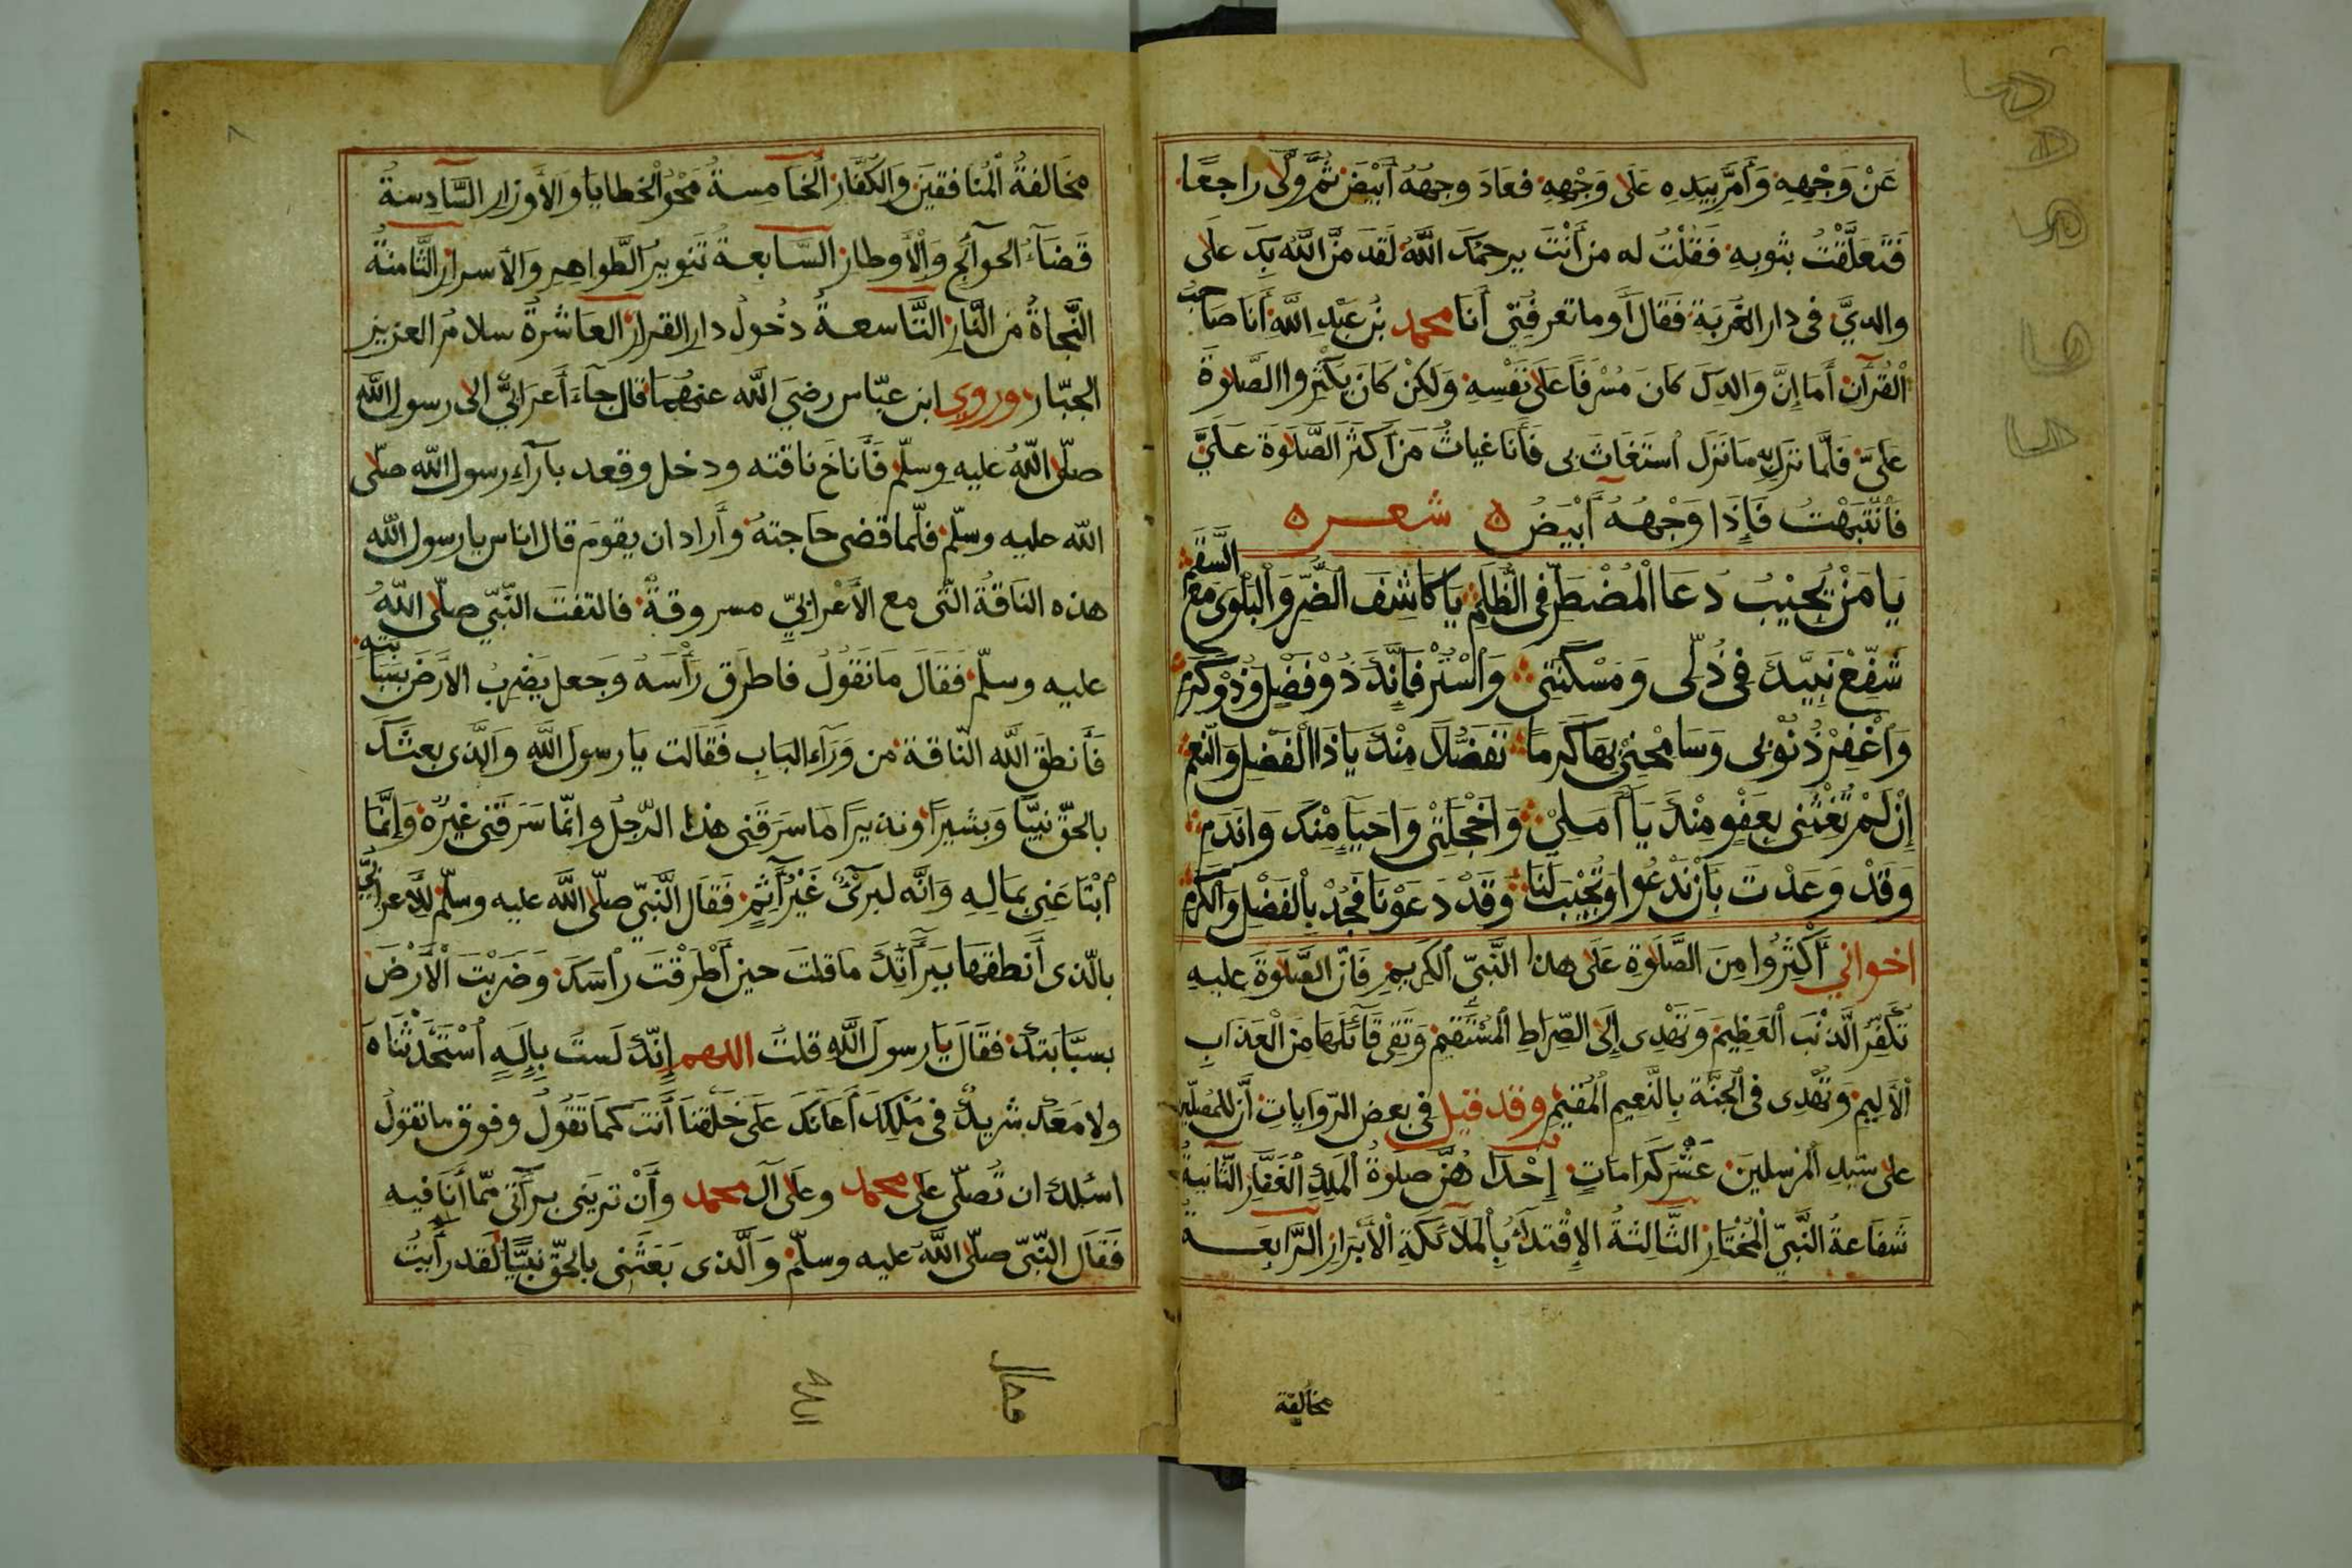 عَنْ وَجْهِهِ وَأَمَرَّ بِيَدِهِ عَلَى وَجْهِهِ فعَادَ وجهُهُ أَبْيَضَ ثُمَّ وَلَّى راجعًا
فَتَعَلَّقْتُ بثوبِهِ فَقُلْتُ له من أَنْتَ يرحمك اللَّهُ لَقَد مَنَّ اللَّهُ بِكَ على
والديَّ فى دار الغُربَةِ فَقَالَ أَوما تعرفُنِى أَنَا محمد بْنُ عَبْدِ اللَّهِ أَنَا صَاحِبُ
الْقُرْآنِ أَمَا إِنَّ وَالدكَ كانَ مُسْرِفًا عَلَى نَفْسِهِ وَلَكِنْ كَانَ يكْثِرُوا الصَّلَاوةَ
عَلَىَّ فَلَمَّا نَزَلَ بِهِ مَا نَزَل اُستَغَاثَ بِى فَأَنَا غياثُ مَن أَكثَرَ الصَّلَاوَةَ عَلَيَّ
فَانْتَبَهْتُ فَإِذَا وَجْهُهُ أَبْيَضُ ه شعر ه
يَا مَنْ يُجِيْبُ دُعَا الْمُضْطَرِّ فِى الظُّلَمِ يَا كَاشِفَ الضُّرِّ وَالْبَلْوَى مَعَ السَّقَمِ
شَفِّعْ نَبِيَّكَ فِى ذُلِّى وَمَسْكَنَتِى وَاسْتُرْ فَإِنَّكَ ذُوْ فَضْلٍ وَذُوْ كَرَمِ
وَاغْفِرْ ذُنُوْبِى وَسَامِحْنِى بِهَا كَرَمًا تَفَضُّلًا مِنْكَ يَا ذَا الْفَضْلِ وَالنِّعَمِ
إِنْ لَمْ تُغِثْنِى بِعَفْوٍ مِنْكَ يَا أَمَلِىْ وَاخَجْلَتِىْ وَاحَيَاءِ مِنْكَ وَانَدَمِ
وَقَدْ وَعَدْتَ بَأَنْ نَدْعُوا وَتُجِيْبَ لَنَا وَقَدْ دَعَوْنَا فَجُدْ بِالفَضْلِ وَالكَرَمِ
اخواني أَكْثِرُوا مِنَ الصَّلَاوةِ عَلَى هذا النَّبِىّ الكَرِيمِ فَانَّ الصَّلَاوَةَ عليهِ
تُكَفِّرُ الَّذَنْبَ العَظِيمَ وَتَهْدِى إِلَى الصِّرَاطِ المُسْتَقِيمِ وَتَقِى قَائِلَهَا مِنَ الْعَذَابِ
الأَلِيمِ وَتَهْدِى فى الجَنَّة بِالنَّعِيم المُقِيمِ وقد قيل فى بعض الرّوايات أنّ للمُصَلِّين
على سَيِّدِ المُرسلينَ عَشْرَ كَرَامَاتٍ إِحْدَا هُنَّ صَلَوةُ الْمَلِكِ الغَفَّارِ الثَّانيةُ
شَفَاعةُ النَّبِيّ المُخْتَارِ الثَّالِثةُ الإِقْتِدَاءُ بِالْمَلَائكَةِ الأَبْرَارِ الرَّابِعَةُ
مخالفة
مخَالفةُ المُنَافقينَ وَالكُفَّارِ الخَامِسةُ مَحْوُ الخطايا وَالأَوزارِ السَّادِسةُ
قَضَاءُ الحوآئِجِ وَالأَوطار السَّابعةُ تَنوِيرُ الظَّواهِرِ وَالأسرارِ الثَّامنةُ
النَّجَاةُ مِنَ النَّارِ التَّاسعةُ دخُولُ دارِ القرارِ العَاشرةُ سلامُ العزيزِ
الجبّار وروى ابن عبّاس رضىَ اللَّه عنهُمَا قال جآءَ أعرَابيٌّ الى رسولِ اللَّهِ
صلّى اللَّهُ عليهِ وسلّم فَأَناخَ ناقته ودخل وقعد بآراءِ رسول اللَّه صلّى
اللَّه عليه وسلّم فلّما قضى حاجتهُ وأراد ان يقومَ قال اناس يا رسول اللَّه
هذه النَاقةُ الّتى مع الأَعْرابِيّ مسروقةٌ فالتفتَ النَّبّى صلّى اللَّهُ
عليه وسلّم فَقَالَ مَا تَقُولُ فاطرقَ رَأْسَهُ وَجعل يَضْرِبُ الأَرضَ بِسَبَّابَتِهِ
فَأَنطَقَ اللَّه النَّاقةَ من وَرَآءِ البَابِ فَقَالت يَا رسولَ اللَّهِ وَالَّذى بعثَكَ
بالحقّ نبيًّا وَبشيرًا ونذيرًا مَا سرَقَنِى هذا الرّجلُ وانّما سَرَقَنِى غيرُهُ وَإِنَّمَا
ابْتَاعَنِى بِمَالِهِ وَانَّه لبرىْءٌ غَيْرُ آثِمٍ فَقَالَ النَّبيّ صلّى اللَّه عليه وسلّم للاَعرابيّ
بالّذى أَنطقهَا بِبَرَآءَتِكَ مَا قلتَ حين أَطرَقْتَ رأسَكَ وَضَرَبْتَ الْأَرْضَ
بسبّابتك فقَالَ يَا رسولَ اللَّهِ قلتُ اللهم إِنّكَ لَستَ بِإِلَهٍ اُسْتَحْدَثْنَاهَ
ولا مَعَكَ شريكٌ فى مُلكِكَ أَعَانَكَ عَلَى خَلْقِنَا أَنتَ كَمَا تَقُولُ وفوق ما نقُولُ
اسئلكَ ان تُصَلّى عَلَى محمد وعلى آل محمد وأَنْ تريَنى برآئتى مّمَا أَنَا فيه
فَقَال النّبىّ صلّى اللَّهُ عليه وسلّم وَالَّذى بَعَثَنِى بالحقّ نبيًّا لَقَد رأيتُ